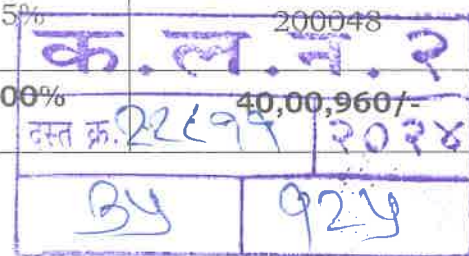 5% 200048
क.ल.न.२
00% 40,00,960/-
दस्त क्र. २०२४
३५ १२५